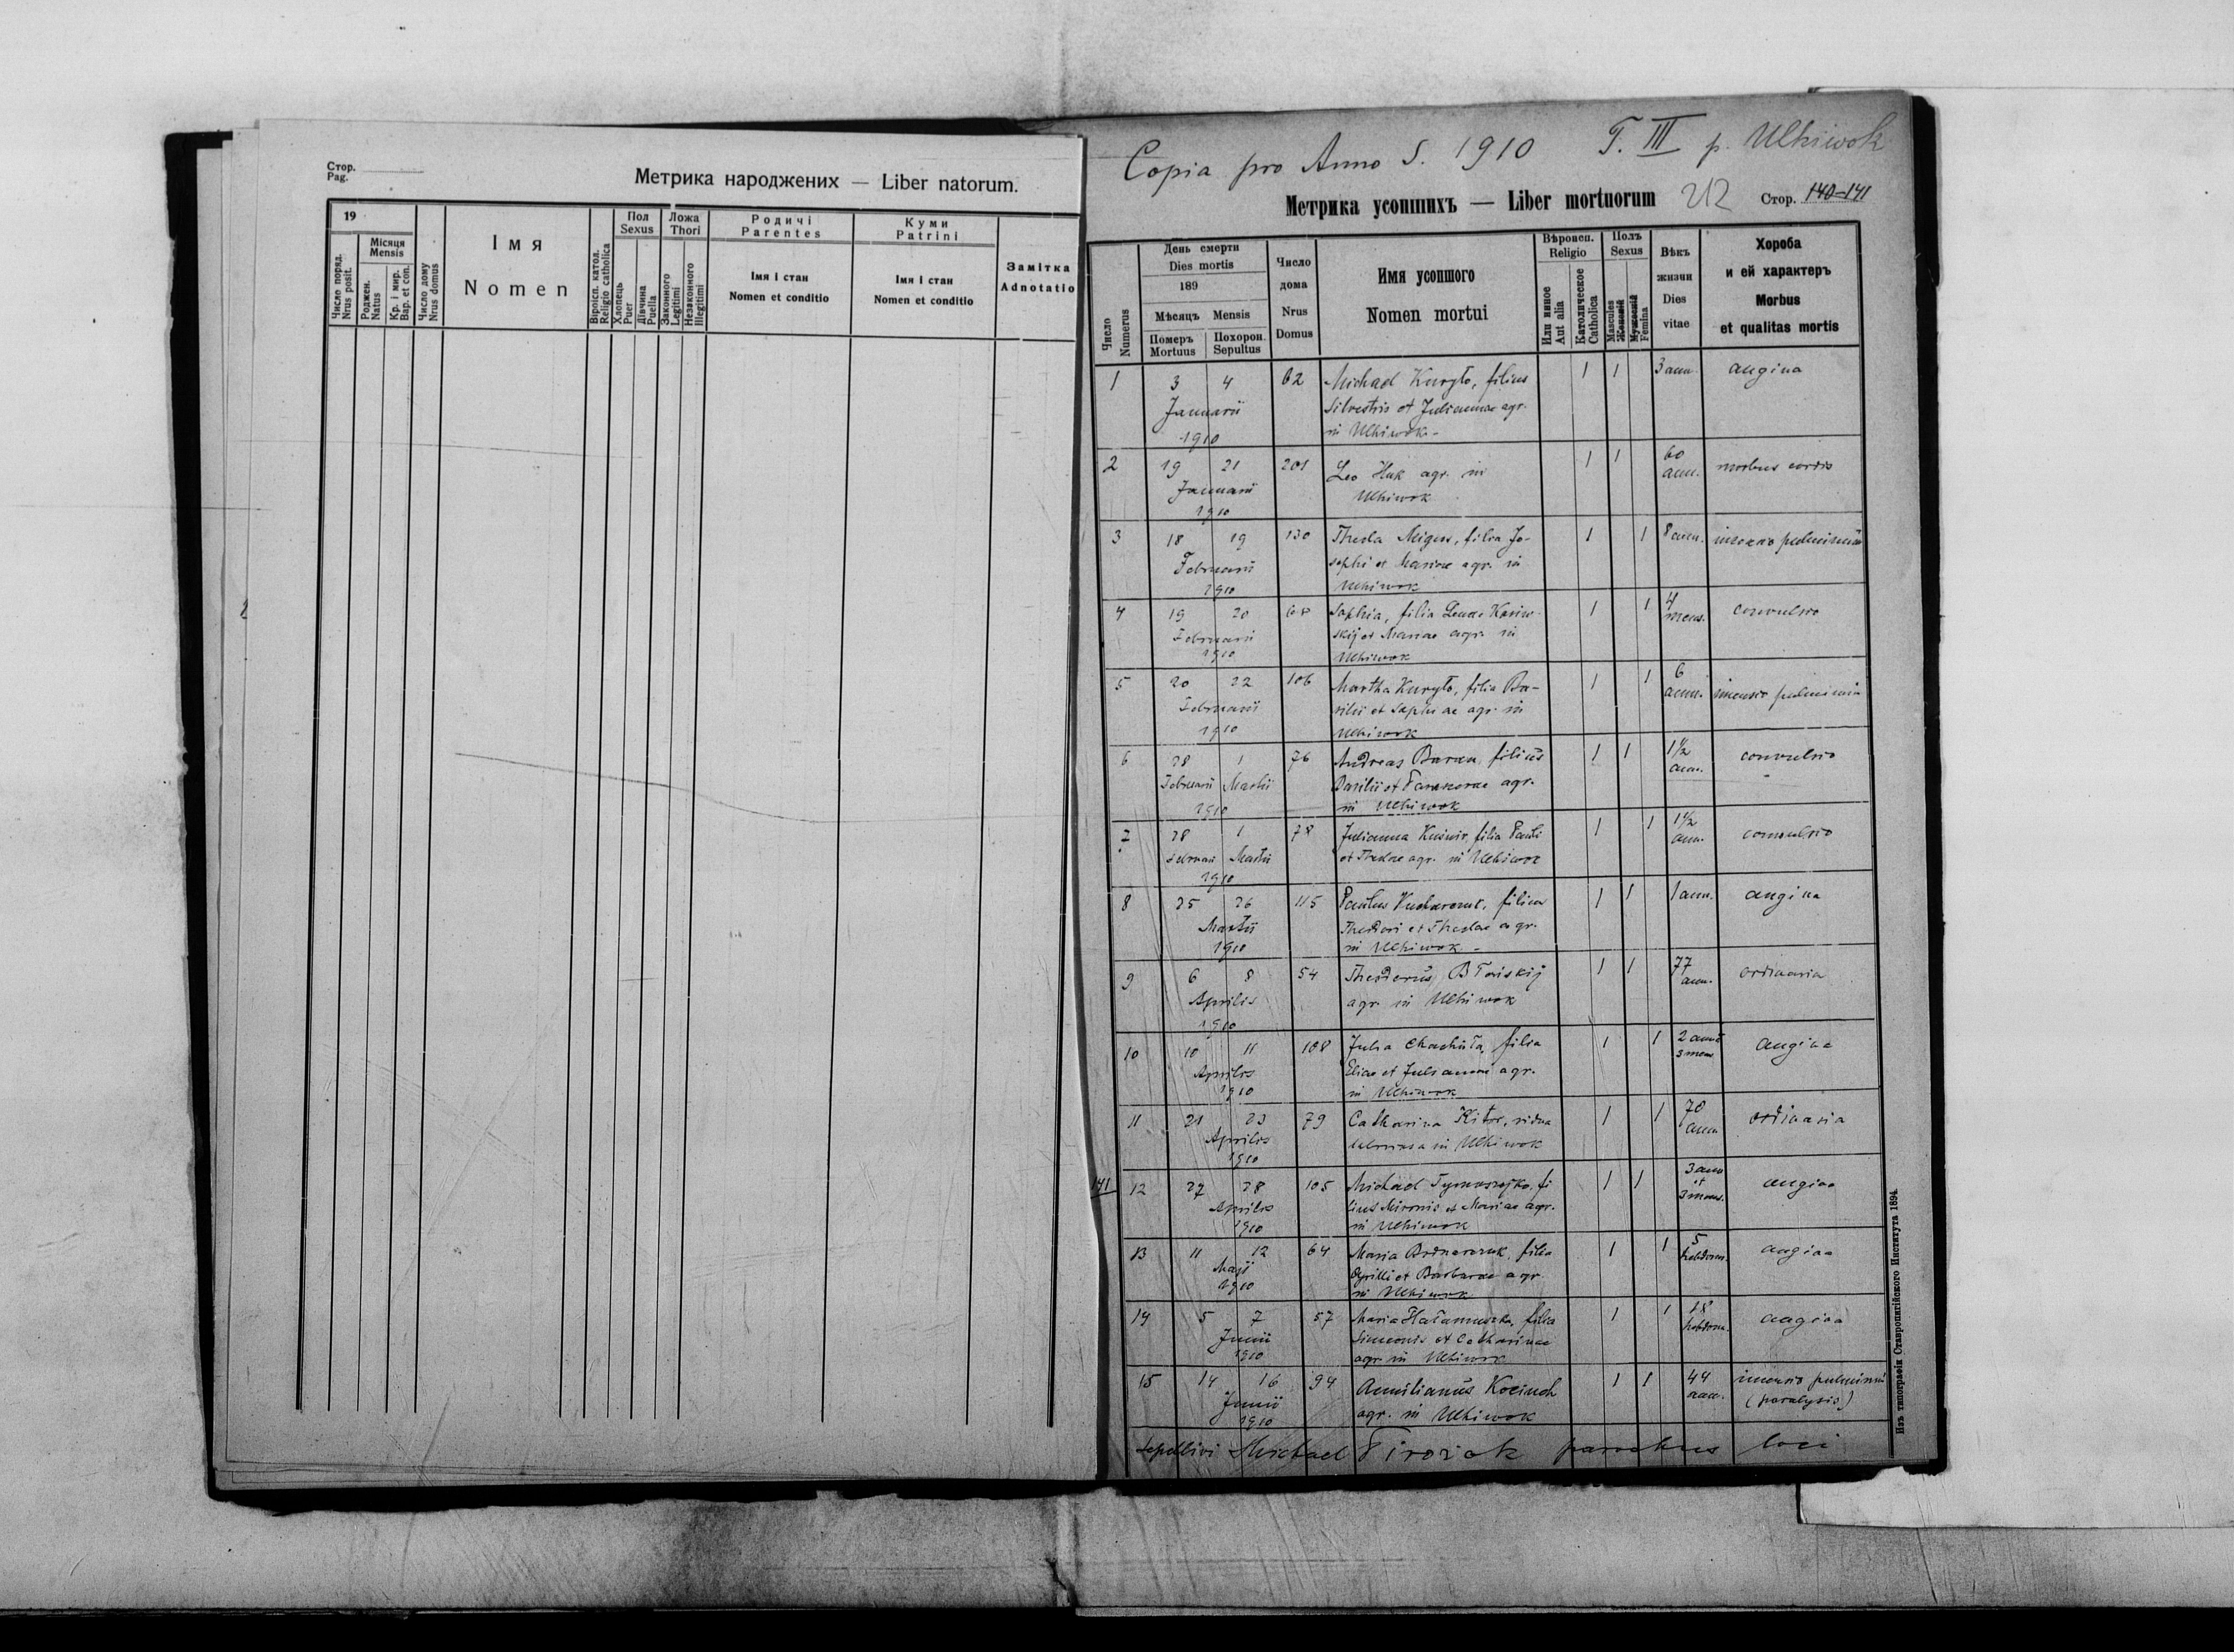 Стор.
Pag.
Метрика народжених — Liber natorum.
19
Число поряд.
Nrus posit.
Місяця
Mensis
Роджен.
Natus
Кр. і мир.
Bap. et con.
Число дому
Nrus domus
Імя
Nomen
Віроісп. катол.
Religio catholica
Пол
Sexus
Хлопець
Puer
Дівчина
Puella
Ложа
Thori
Законного
Legitimi
Незаконного
Illegitimi
Родичі
Parentes
Імя і стан
Nomen et conditio
Куми
Patrini
Імя і стан
Nomen et conditio
Замітка
Adnotatio
Copia pro Anno S. 1910 T. III p. Uhliwok
Метрика усопшихъ — Liber mortuorum 212 Стор. 140-141
Число
Numerus
День смерти
Dies mortis
189
Мѣсяцъ Mensis
Померъ
Mortuus
Похорон.
Sepultus
Число
дома
Nrus
Domus
Имя усопшого
Nomen mortui
Вѣроисп.
Religio
Или инное
Aut alia
Католическое
Catholica
Полъ
Sexus
Mascules
Femina
Вѣкъ
жизни
Dies
vitae
Хороба
и ей характеръ
Morbus
et qualitas mortis
1 3 4 62 Michael Kuryło, filius 1 1 3 ann. angina
Januarii Silvestris et Juliannae agr.
1910 in Uhliwok
2 19 21 201 Leo Huk agr. in 1 1 60 ann. morbus cordis
Januarii Uhliwok
1910
3 18 19 130 Thecla filia Jo- 1 1 8 ann.
Februarii sephi et Mariae agr. in
1910 Uhliwok
4 19 20 68 Sophia, filia Lucae 1 1 4 mens. convulsio
Februarii skij et Mariae agr. in
1910 Uhliwok
5 20 22 106 Martha Kuryło, filia Ba- 1 1 6 ann.
Februarii silii et Sophiae agr. in
1910 Uhliwok
6 28 1 76 Andreas Baran, filius 1 1 1½ ann. convulsio
Februarii Martii Basilii et Parascevae agr.
1910 in Uhliwok
7 28 1 78 Julianna Kuśnir, filia Pauli 1 1 1½ ann. convulsio
Februarii Martii et Theclae agr. in Uhliwok
1910
8 25 26 115 Paulus filius 1 1 1 ann. angina
Martii Theodori et Theclae agr.
1910 in Uhliwok
9 6 8 54 Theodorus 1 1 77 ann. ordinaria
Aprilis agr. in Uhliwok
1910
10 10 11 108 Julia Chachuła, filia 1 1 2 anni 3 mens angina
Aprilis Eliae et Juliannae agr.
1910 in Uhliwok
11 21 23 79 Catharina vidua 1 1 70 ann ordinaria
Aprilis in Uhliwok
1910
141
12 27 28 105 Michael fi 1 1 3 ann et 3 mens. angina
Aprilis lius Mironis et Mariae agr.
1910 in Uhliwok
13 11 12 64 Maria Bodnarczuk, filia 1 1 5 hebdom. angina
Maji Cyrilli et Barbarae agr.
1910 in Uhliwok
14 5 7 57 Maria filia 1 1 18 hebdom. angina
Junii Simeonis et Catharinae
1910 agr. in Uhliwok
15 14 16 94 Aemilianus 1 1 44 ann.
Junii agr. in Uhliwok (paralysis)
1910
Sepelivi Michael parochus loci
Изъ типографіи Ставропигійского Института 1894.